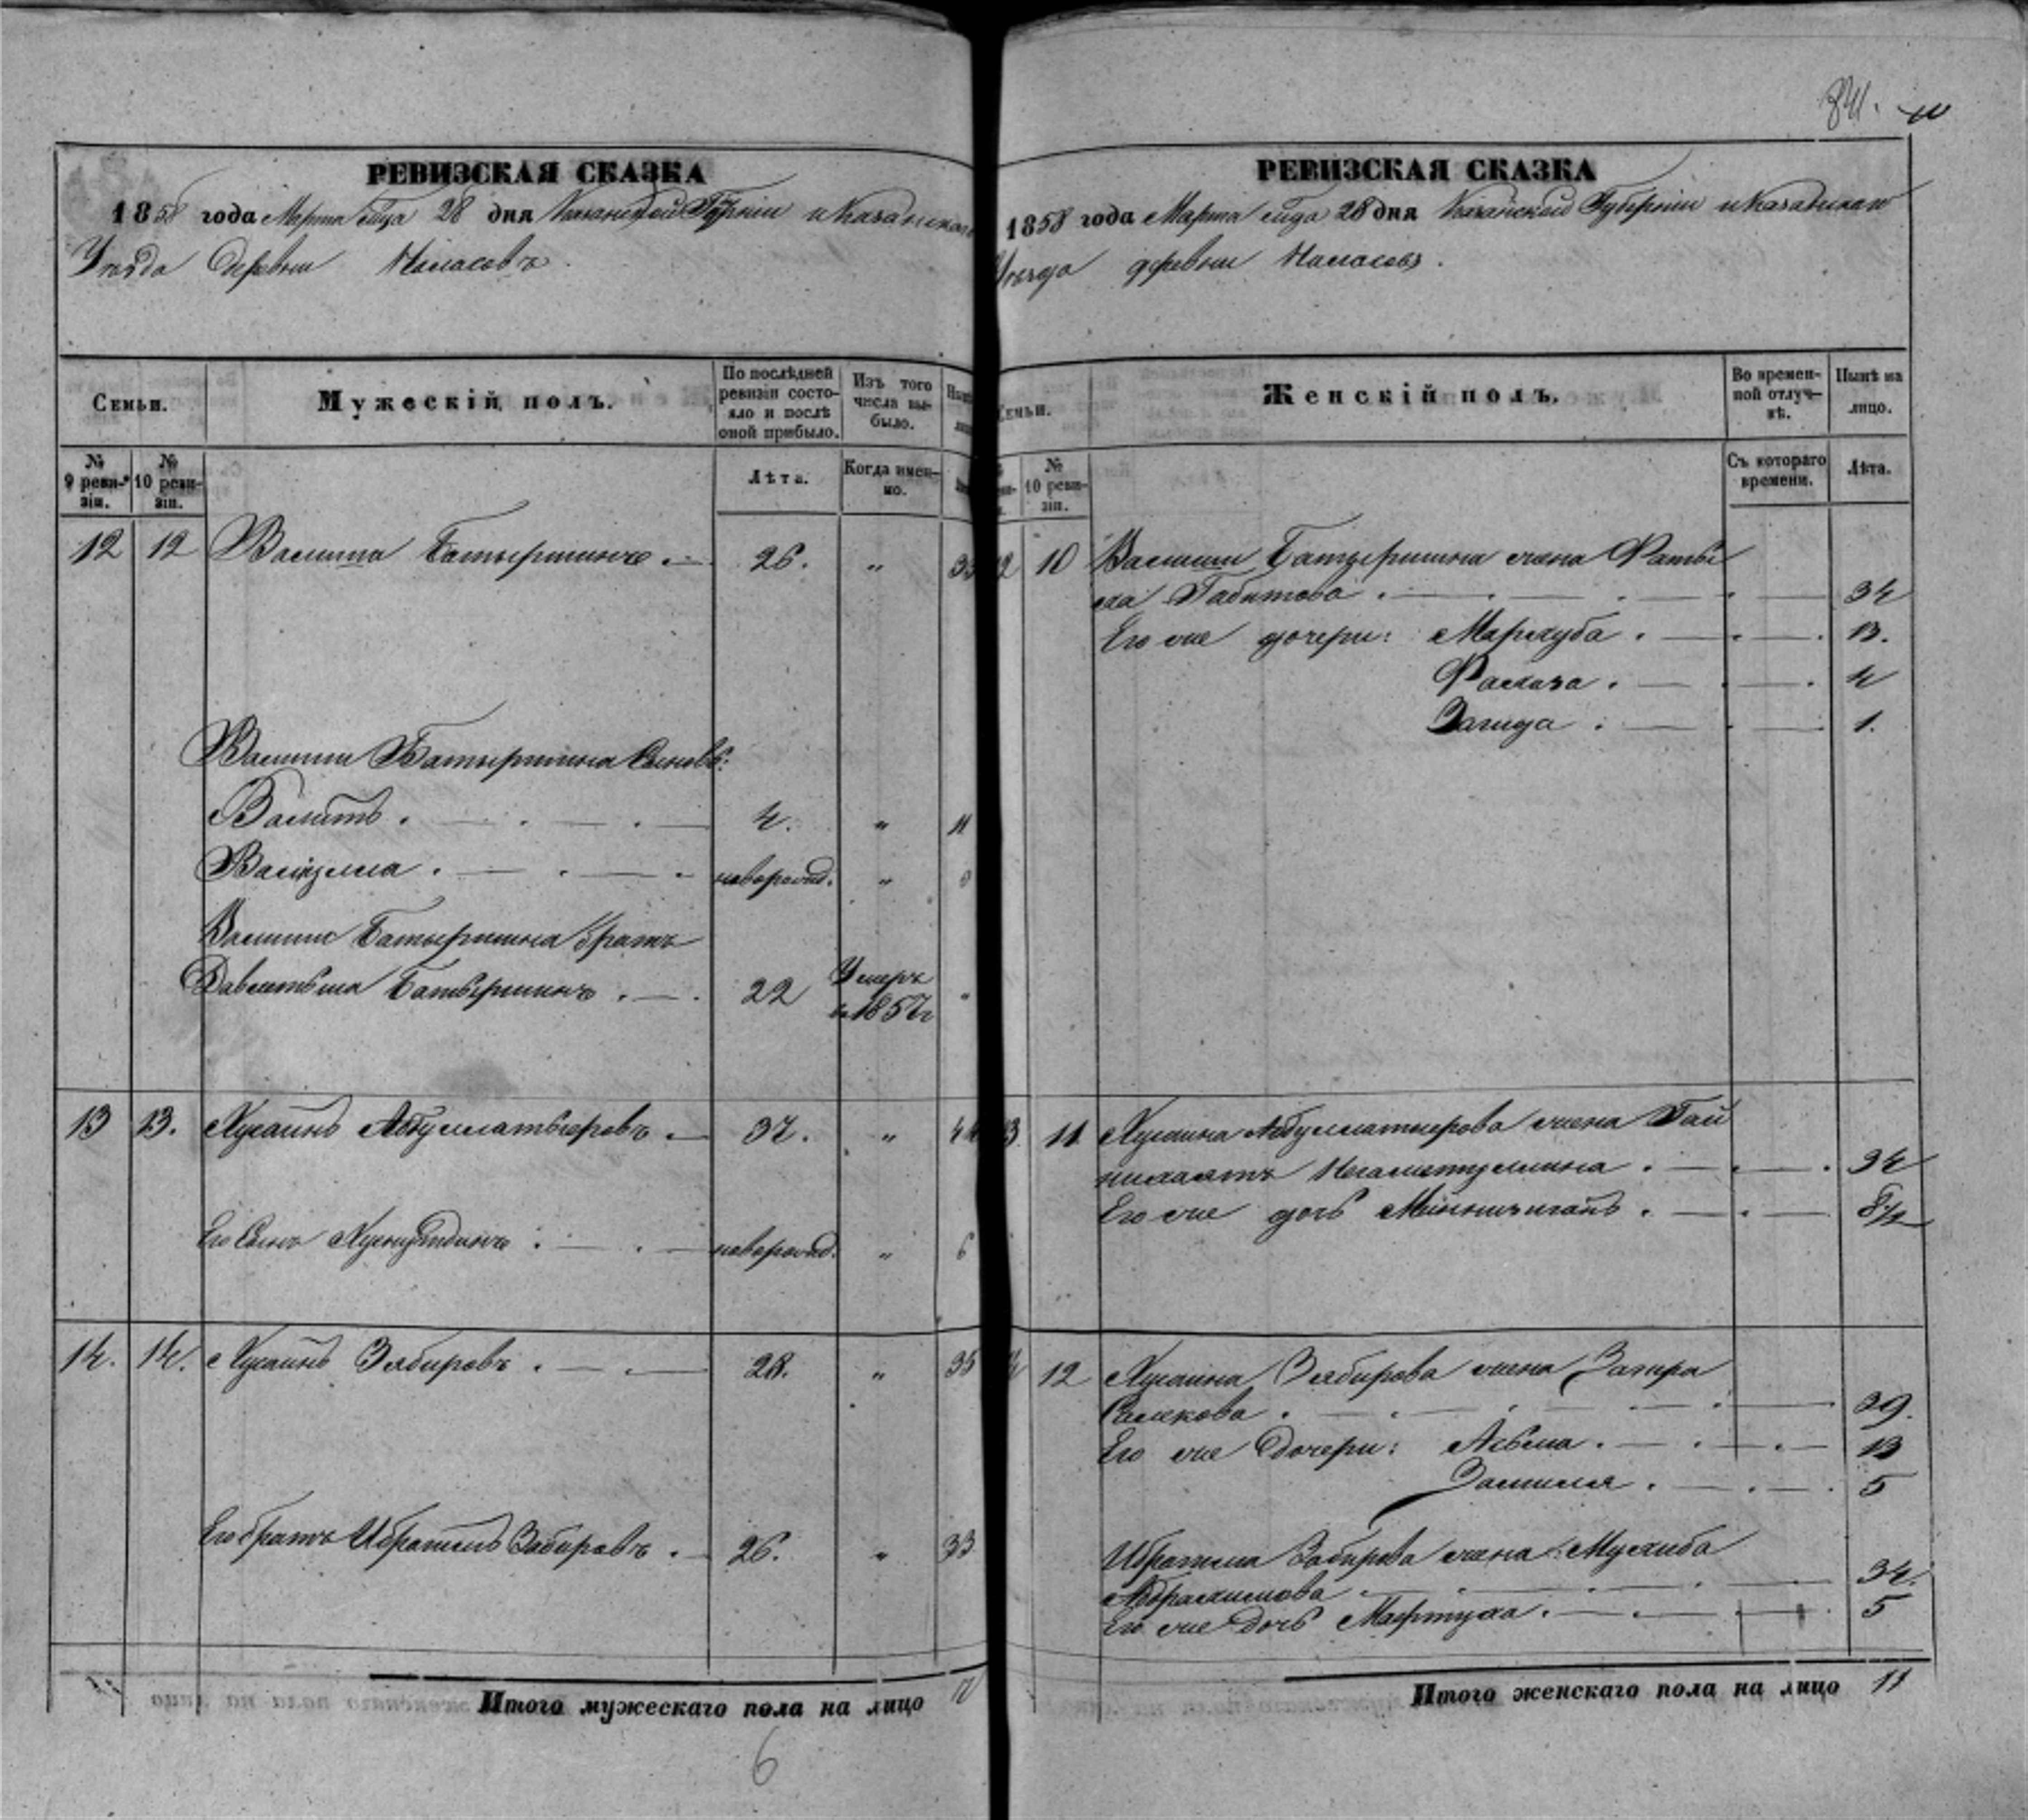 841.
РЕВИЗСКАЯ СКАЗКА
1858 года Марта м-ца 28 дня Казанской Губрніи и Казанскаго
Уѣзда Деревни
Семьи.
Мужескій полъ.
По послѣдней ревизіи состояло и послѣ оной прибыло.
Изъ того числа выбыло.
№ 9 ревизіи.
№ 10 ревизіи.
Лѣта.
Когда именно.
12 12 Валиша Батыршинъ 26. „ 33
Валиши Батыршина Сыновья:
Валитъ 4. „ 11
новорожд. „
Валиши Батыршина братъ
Давлетьша Батыршинъ 22 Умеръ
в 1857 г
13 13. Хусаинъ 37. „ 44
Его Сынъ новорожд. „ 6
14. 14. Хусаинъ Зябировъ 28. „ 35
Его братъ Ибрагимъ Забировъ 26. „ 33
Итого мужескаго пола на лицо
6
РЕВИЗСКАЯ СКАЗКА
1858 года Марта м-ца 28 дня Казанской Губерніи и Казанскаго
Уѣзда деревни
Семьи.
Женскій полъ.
Во временной отлучкѣ.
Нынѣ на лицо.
№ 10 ревизіи.
Съ котораго времени.
Лѣта.
12 10 Валиши Батыршина жена Фаты
ха Габитова 34
Его же дочери: Мархуба 13.
4
Загида 1.
13 11 Хусаина жена Гай
34
Его же дочь 8 1/2
14 12 Хусаина Зябирова жена Загира
Салекова 39.
Его же Дочери: Асьма 13
5
Ибрагима Забирова жена Мухиба
Абдрахимова 34.
Его же Дочь 5
Итого женскаго пола на лицо 11